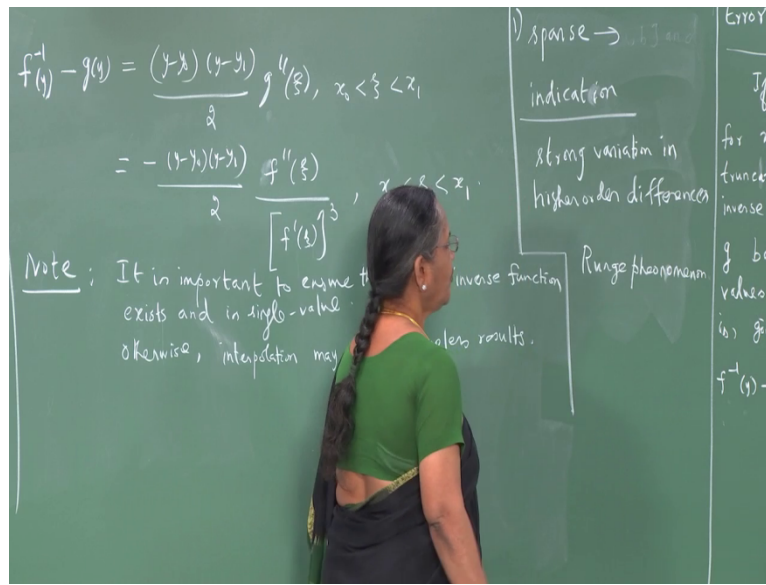 f⁻¹(y) - g(y) = (y-y₀)(y-y₁)/2 g''(ξ), x₀ < ξ < x₁
= - (y-y₀)(y-y₁)/2 f''(ξ)/[f'(ξ)]³, x < x₁.
Note : It is important to ensure inverse function
exists and is single-value.
otherwise, interpolation may results.
1) sparse →
indication
strong variation in
higher order differences
Runge pheonomenon
Error
If
for
trunca
inverse
g
values
is,
f⁻¹(y) -